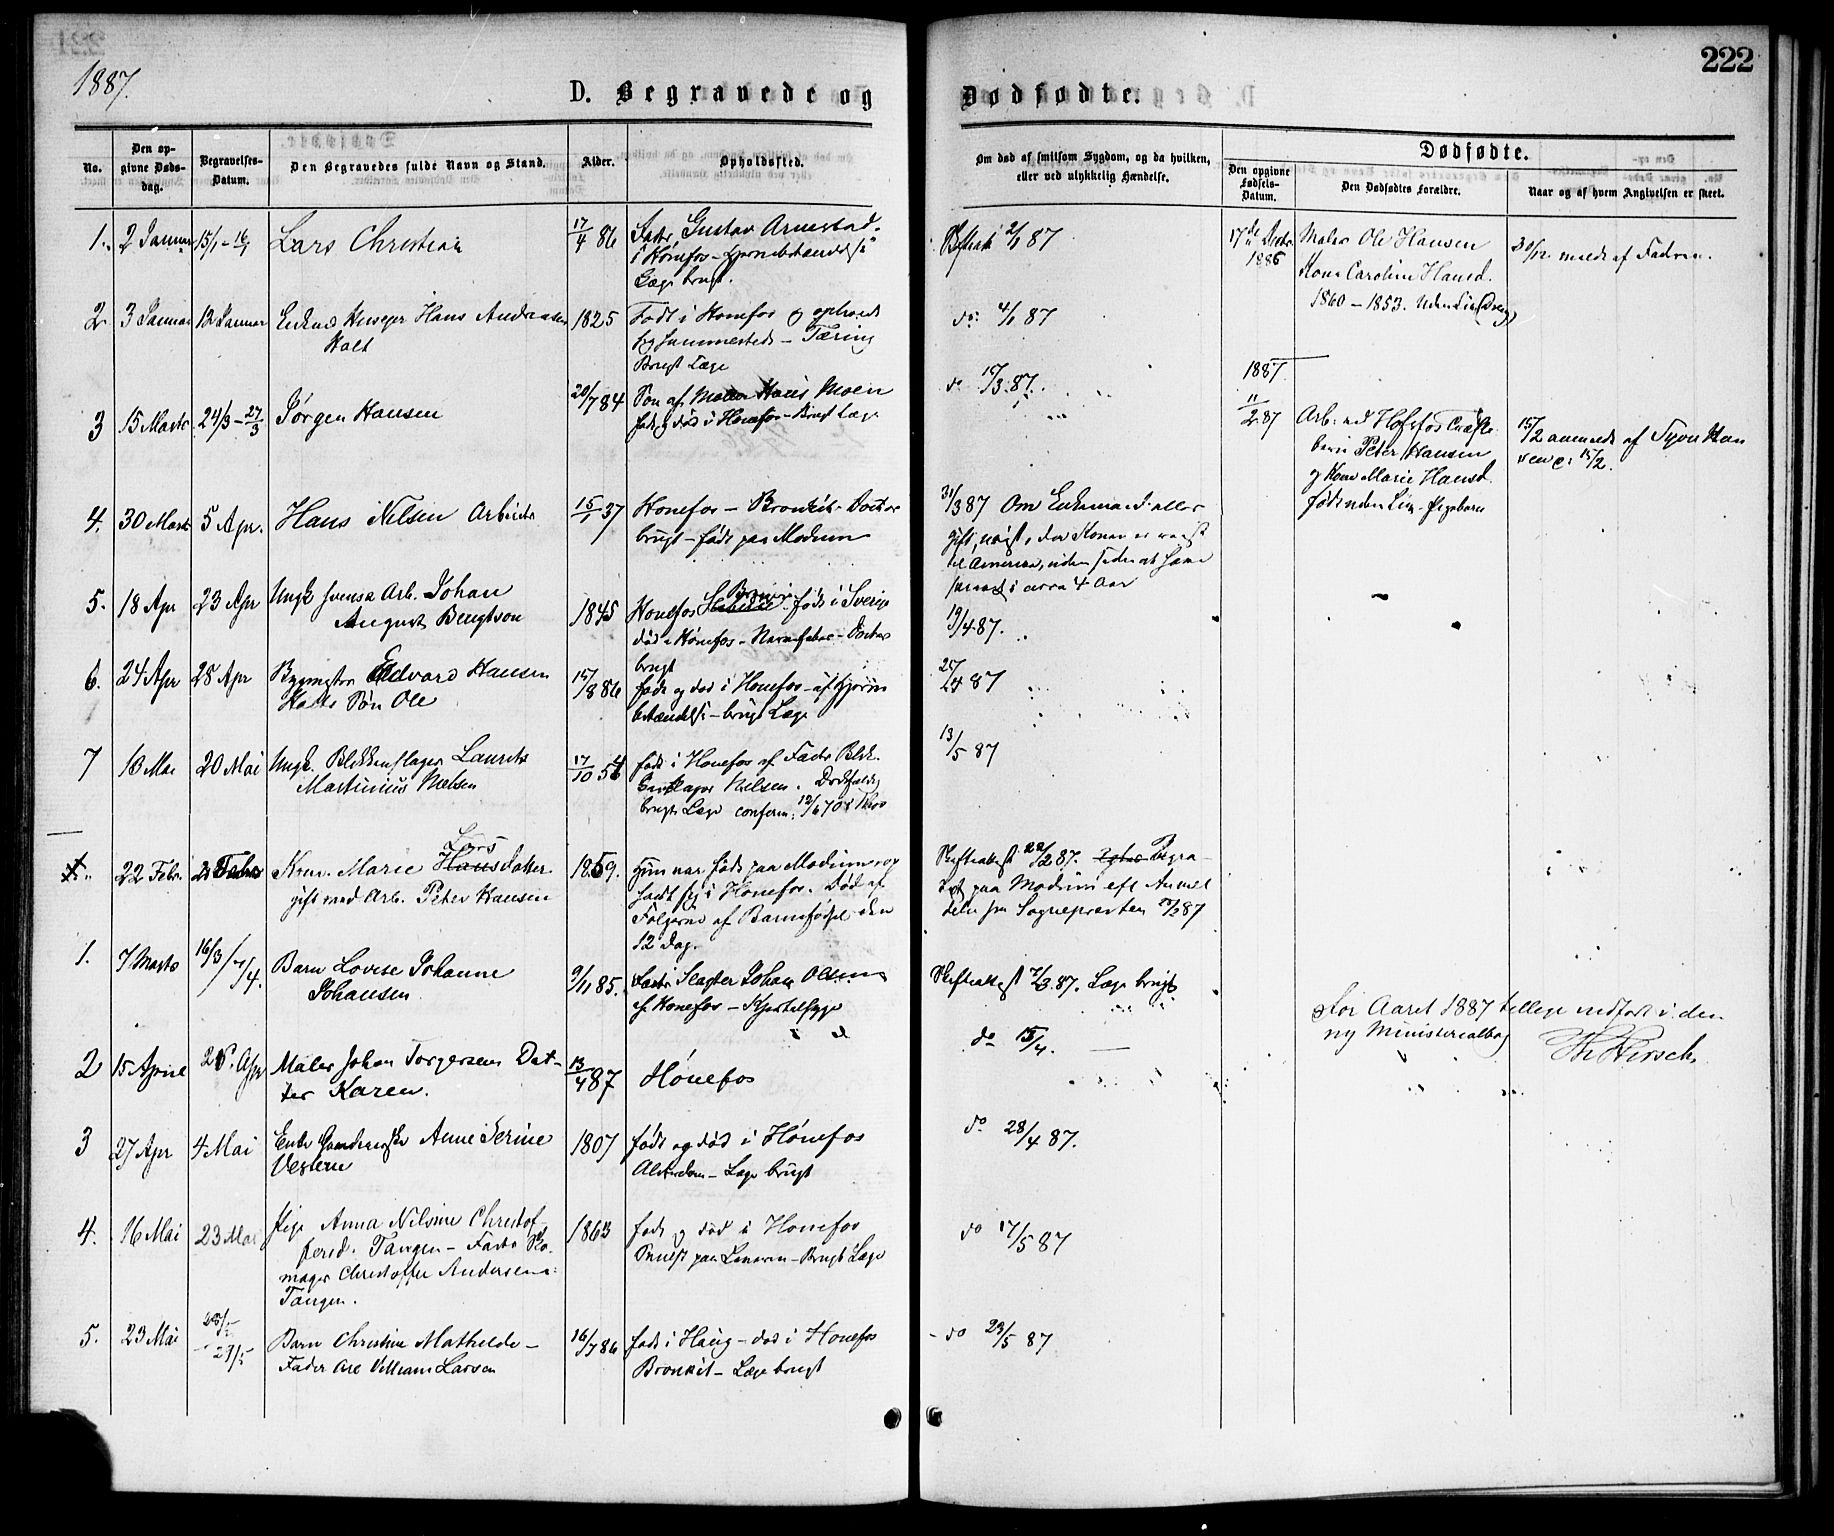 222
1887.
D. Begravede og Dødfødte.
No.
Den opgivne Dødsdag.
Begravelses-Datum.
Den Begravedes fulde Navn og Stand.
Alder.
Opholdssted.
Om død af smitsom Sygdom, og da hvilken, eller ved ulykkelig Hændelse.
Dødfødte.
Den opgivne Fødsels-Datum.
Den Dødfødtes Forældre.
Naar og af hvem Angivelsen er skeet.
1. 2 Januar 15/1 - 16/1 Lars Christian 17/4 86 Gustav Arnestad
i Hønefos - Hjernebetændelse
Læge brugt.
2/1 87
2 3 Januar 12 Januar Enkemd Huseyer Hans Andreasen 1825 Født i Hønefos og
Holt
sammesteds - Tæring
Brugt Læge
do 4/1 87
3 15 Marts 24/3 - 27/3 Jørgen Hansen 20/7 84 Søn af Hans Moen
født og død i Hønefos - Brugt Læge
do 17/3 87.
4. 30 Marts 5 Apr. Hans Nilsen Arbeider 15/1 37 Hønefos - Bronkit - Doctor
brugt - født paa Modum
31/3 87 Om Enkemand eller
gift, Konen er reist
til America, uden siden at have
i circa 4 Aar
5. 18 Apr 23 Apr Ungk svensk Arb. Johan 1845 Hønefos født i Sverige
August Bengtson
død i Hønefos - Nervefeber - Doctor
brugt
19/4 87.
6. 24 Apr 28 Apr Bygmester Edvard Hansen 15/8 86 født og død i Hønefos - af Hjerne
Holts Søn Ole
betændelse - brugt Læge
25/4 87
7 10 Mai 20 Mai Ungk. Blikkenslager Laurits 17/10 54 født i Hønefos af Fader Blik
Martinius Nielsen
Nilsen.
brugt Læge conferm. 12/6 70
13/5 87
22 Febr. Kone Marie Lars datter 1859. Hun var født paa Modum og
gift med Arb. Peter Hansen
i Hønefos. Død af
Følgerne af Barnefødsel den
12 dag.
Skifteattest 22/2 87. Begra-
vet paa Modum eft Anmel
delse fra Sognepresten
1. 7 Marts 16/3 Barn Lovise Johanne 9/11 85. Fader Slagter Johan Olsen
Johansen
af Hønefos - Kjertelsyge
Skifteattest 7/3 87. Læge brugt
2 15 April Apr Maler Johan Torgersens Dat- 13/4 87 Hønefos
ter Karen.
do 15/4.
3 27 Apr 4 Mai Enke Anne Serine 1807 født og død i Hønefos
Vestern
Alderdom - Læge brugt
do 28/4 87.
4. 16 Mai 23 Mai Pige Anna Nilsine Christof- 1863 født og død i Hønefos
fersd. Tangen - Fader Sko-
mager Christoffer Andersen
Tangen.
Brugt Læge
do 17/5 87
5. 23 Mai 28/5 - 29/5 Barn Christine Mathilde - 16/7 86 født i Haug - død i Hønefos
Fader Arb Villiam Larsen
Bronkit - Læge brugt
do 23/5 87
17de Decbr 1886 Maler Ole Hansen
Kone Caroline Hansd.
1860 - 1853. Uden Liv (Dreng)
30/12 meldt af Faderen.
1887.
11/2 87 Arb. ved Hofsfos
Peter Hansen
og Kone Marie Hansd.
født uden Liv - Pigebarn
15/2 anmeldt af
15/2.
For Aaret 1887 tillige indført i den
ny Ministerialbog
Th Hirsch.